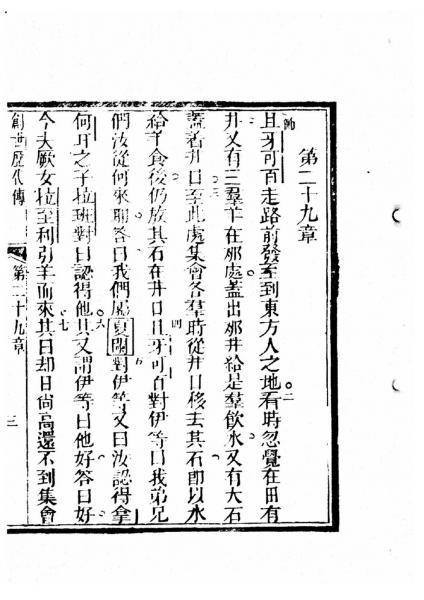 第二十九章
且牙可百走路前發至到東方人之地看時忽覺在田有
二
井又有三羣羊在那處蓋出那井給是羣飲水又有大石
蓋着井口至此處集會各羣時從井口移去其石即以水
三
給羊食後仍放其石在井口且牙可百對伊等曰我弟兄
四
們汝從何來聊答曰我們屬夏蘭對伊等又曰汝認得拿
五
何耳之子拉班對曰認得他其又謂伊等曰他好答曰好
六
今夫厥女拉至利引羊而來其曰却日尚高還不到集會
七
創世歷代傳
第二十九章
三